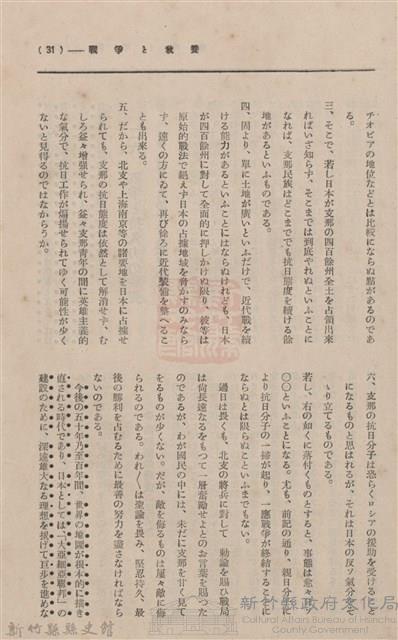 (31)──戰爭と敎養
チオピアの地位などとは比較にならぬ點があるのであ
る。
三、そこで、若し日本が支那の四百餘州全土を占領出來
ればいざ知らず、そこまでは到底やれぬといふことに
なれば、支那民族はどこまでも抗日態度を續ける餘
地があるといふものである。
四、固より、單に土地が廣いといふだけで、近代戰を續
ける能力があるといふことにはならぬけれども、日本
が四百餘州に對して全面的に押しかけぬ限り、彼等は
原始的戰法で絕えず日本の占據地域を脅かすのみなら
ず、遠くの方にゐて、再び徐ろに近代裝備を整へるこ
とも出來る。
五、だから、北支や上海南京等の諸要地を日本に占據せ
られても、支那の抗日態度は依然として解消せず、む
しろ益々增强せられ、益々支那靑年の間に英雄主義的
な氣分で、抗日工作が煽揚せられてゆく可能性が少く
ないと見得るのではなからうか。
六、支那の抗日分子は恐らくロシアの援助を受けること
になるものと思はれるが、それは日本の反ソ氣分を
り立てるものである。
若し、右の如くに落付くものとすると、事態は愈々
〇〇といふことになる。尤も、前記の通り、親日分子に
より抗日分子の一掃が起り、一應戰爭が終結することに
ならぬとは限らぬこといふまでもない。
過日は畏くも、北支の將兵に對して 勅諭を賜ひ戰局
は尙長遠なるをもつて一層奮勵せよとのお言葉を賜つた
のであるが、わが國民の中には、未だに支那を甘く見て
をるものが少くない。だが、敵を侮るものは屢々敵に侮
られるのである。われ〱は聖諭を畏み、堅忍持久、最
後の勝利を占むるために最善の努力を盡さなければなら
ないのである。
今後の五十年乃至百年間、世界の地圖が根本的に描き
直される時代であり、日本としては「大亞細亞聯邦」の
建設のために、深遠雄大なる理想を揭げて巨步を進めな
新竹縣縣史館
新竹縣政府文化局
Cultural Affairs Bureau of Hsinchu
County Government